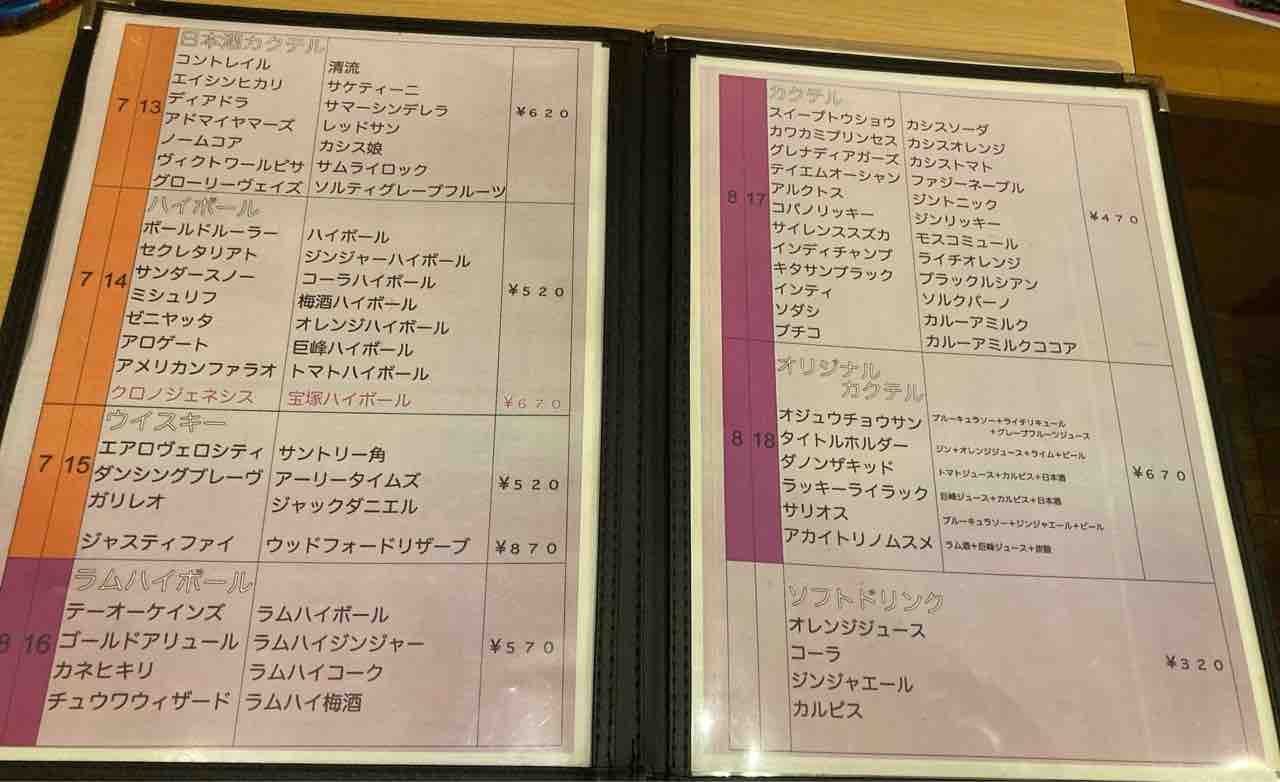 7 13
日本酒カクテル
コントレイル 清流
エイシンヒカリ サケティーニ
ディアドラ サマーシンデレラ
アドマイヤマーズ レッドサン
ノームコア カシス娘
ヴィクトワールピサ サムライロック
グローリーヴェイズ ソルティグレープフルーツ
¥620
7 14
ハイボール
ボールドルーラー ハイボール
セクレタリアト ジンジャーハイボール
サンダースノー コーラハイボール
ミシュリフ 梅酒ハイボール
ゼニヤッタ オレンジハイボール
アロゲート 巨峰ハイボール
アメリカンファラオ トマトハイボール
¥520
クロノジェネシス 宝塚ハイボール ¥670
7 15
ウイスキー
エアロヴェロシティ サントリー角
ダンシングブレーヴ アーリータイムズ
ガリレオ ジャックダニエル
¥520
ジャスティファイ ウッドフォードリザーブ ¥870
8 16
ラムハイボール
テーオーケインズ ラムハイボール
ゴールドアリュール ラムハイジンジャー
カネヒキリ ラムハイコーク
チュウワウィザード ラムハイ梅酒
¥570
8 17
カクテル
スイープトウショウ カシスソーダ
カワカミプリンセス カシスオレンジ
グレナディアガーズ カシストマト
テイエムオーシャン ファジーネーブル
アルクトス ジントニック
コパノリッキー ジンリッキー
サイレンススズカ モスコミュール
インディチャンプ ライチオレンジ
キタサンブラック ブラックルシアン
インティ ソルクバーノ
ソダシ カルーアミルク
ブチコ カルーアミルクココア
¥470
8 18
オリジナル
カクテル
オジュウチョウサン ブルーキュラソー+ライチリキュール
+グレープフルーツジュース
タイトルホルダー ジン+オレンジジュース+ライム+ビール
ダノンザキッド トマトジュース+カルピス+日本酒
ラッキーライラック 巨峰ジュース+カルピス+日本酒
サリオス ブルーキュラソー+ジンジャエール+ビール
アカイトリノムスメ ラム酒+巨峰ジュース+炭酸
¥670
ソフトドリンク
オレンジジュース
コーラ
ジンジャエール
カルピス
¥320